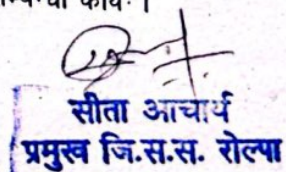 कार्य ।
सीता आचार्य
प्रमुख जि.स.स. रोल्पा